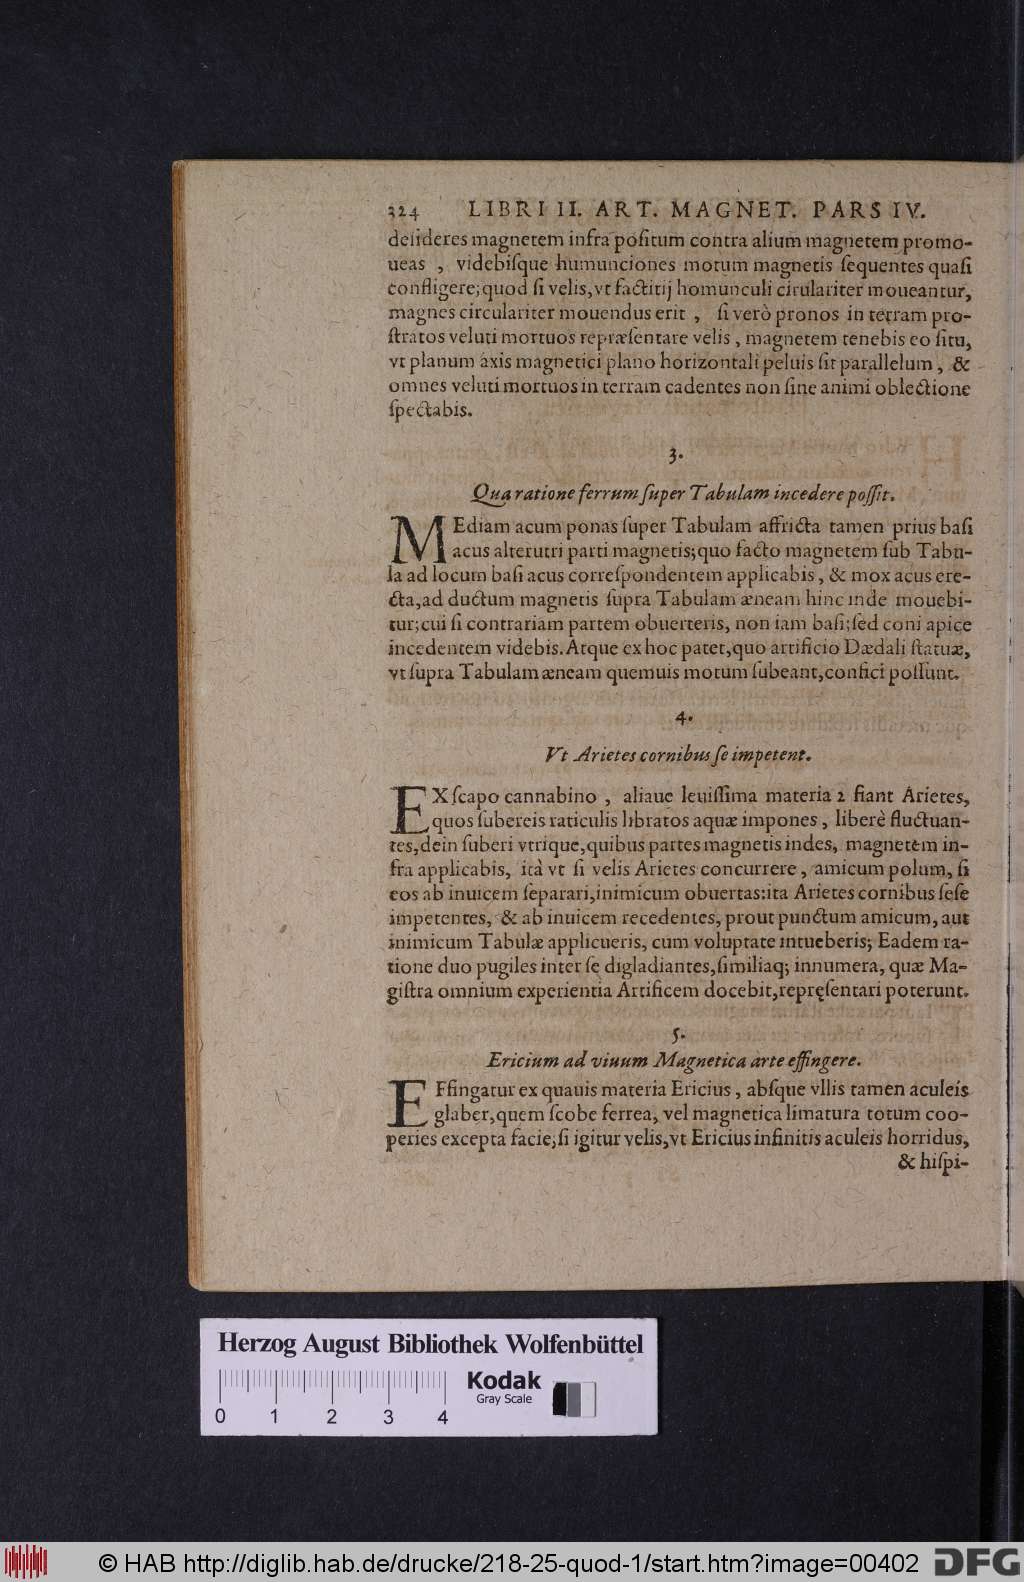 324 LIBRI II. ART. MAGNET. PARS IV.
desideres magnetem infra poſitum contra alium magnetem promo-
ueas , videbiſque humunciones motum magnetis ſequentes quaſi
confligere; quod ſi velis, vt factitij homunculi cirulariter moueantur,
magnes circulariter mouendus erit , ſi verò pronos in terram pro-
ſtratos veluti mortuos repræſentare velis , magnetem tenebis eo ſitu,
vt planum axis magnetici plano horizontali peluis ſit parallelum , &
omnes veluti mortuos in terram cadentes non ſine animi oblectione
ſpectabis.
3.
Qua ratione ferrum ſuper Tabulam incedere poſſit.
MEdiam acum ponas ſuper Tabulam affricta tamen prius baſi
acus alterutri parti magnetis; quo facto magnetem ſub Tabu-
la ad locum baſi acus correſpondentem applicabis , & mox acus ere-
cta, ad ductum magnetis ſupra Tabulam æneam hinc inde mouebi-
tur; cui ſi contrariam partem obuerteris, non iam baſi; ſed coni apice
incedentem videbis. Atque ex hoc patet, quo artificio Dædali ſtatuæ,
vt ſupra Tabulam æneam quemuis motum ſubeant, confici poſſunt.
4.
Vt Arietes cornibus ſe impetent.
EX ſcapo cannabino , aliaue leuiſſima materia 2 fiant Arietes,
quos ſubereis raticulis libratos aquæ impones , liberè fluctuan-
tes, dein ſuberi vtrique, quibus partes magnetis indes, magnetem in-
fra applicabis, ità vt ſi velis Arietes concurrere , amicum polum, ſi
eos ab inuicem ſeparari, inimicum obuertas: ita Arietes cornibus ſeſe
impetentes, & ab inuicem recedentes, prout punctum amicum, aut
inimicum Tabulæ applicueris, cum voluptate intueberis; Eadem ra-
tione duo pugiles inter ſe digladiantes, ſimiliaq; innumera, quæ Ma-
giſtra omnium experientia Artificem docebit, repręſentari poterunt.
5.
Ericium ad viuum Magnetica arte effingere.
EFfingatur ex quauis materia Ericius , abſque vllis tamen aculeis
glaber, quem ſcobe ferrea, vel magnetica limatura totum coo-
peries excepta facie; ſi igitur velis, vt Ericius infinitis aculeis horridus,
& hiſpi-
Herzog August Bibliothek Wolfenbüttel
Kodak
Gray Scale
0 1 2 3 4
© HAB http://diglib.hab.de/drucke/218-25-quod-1/start.htm?image=00402 DFG